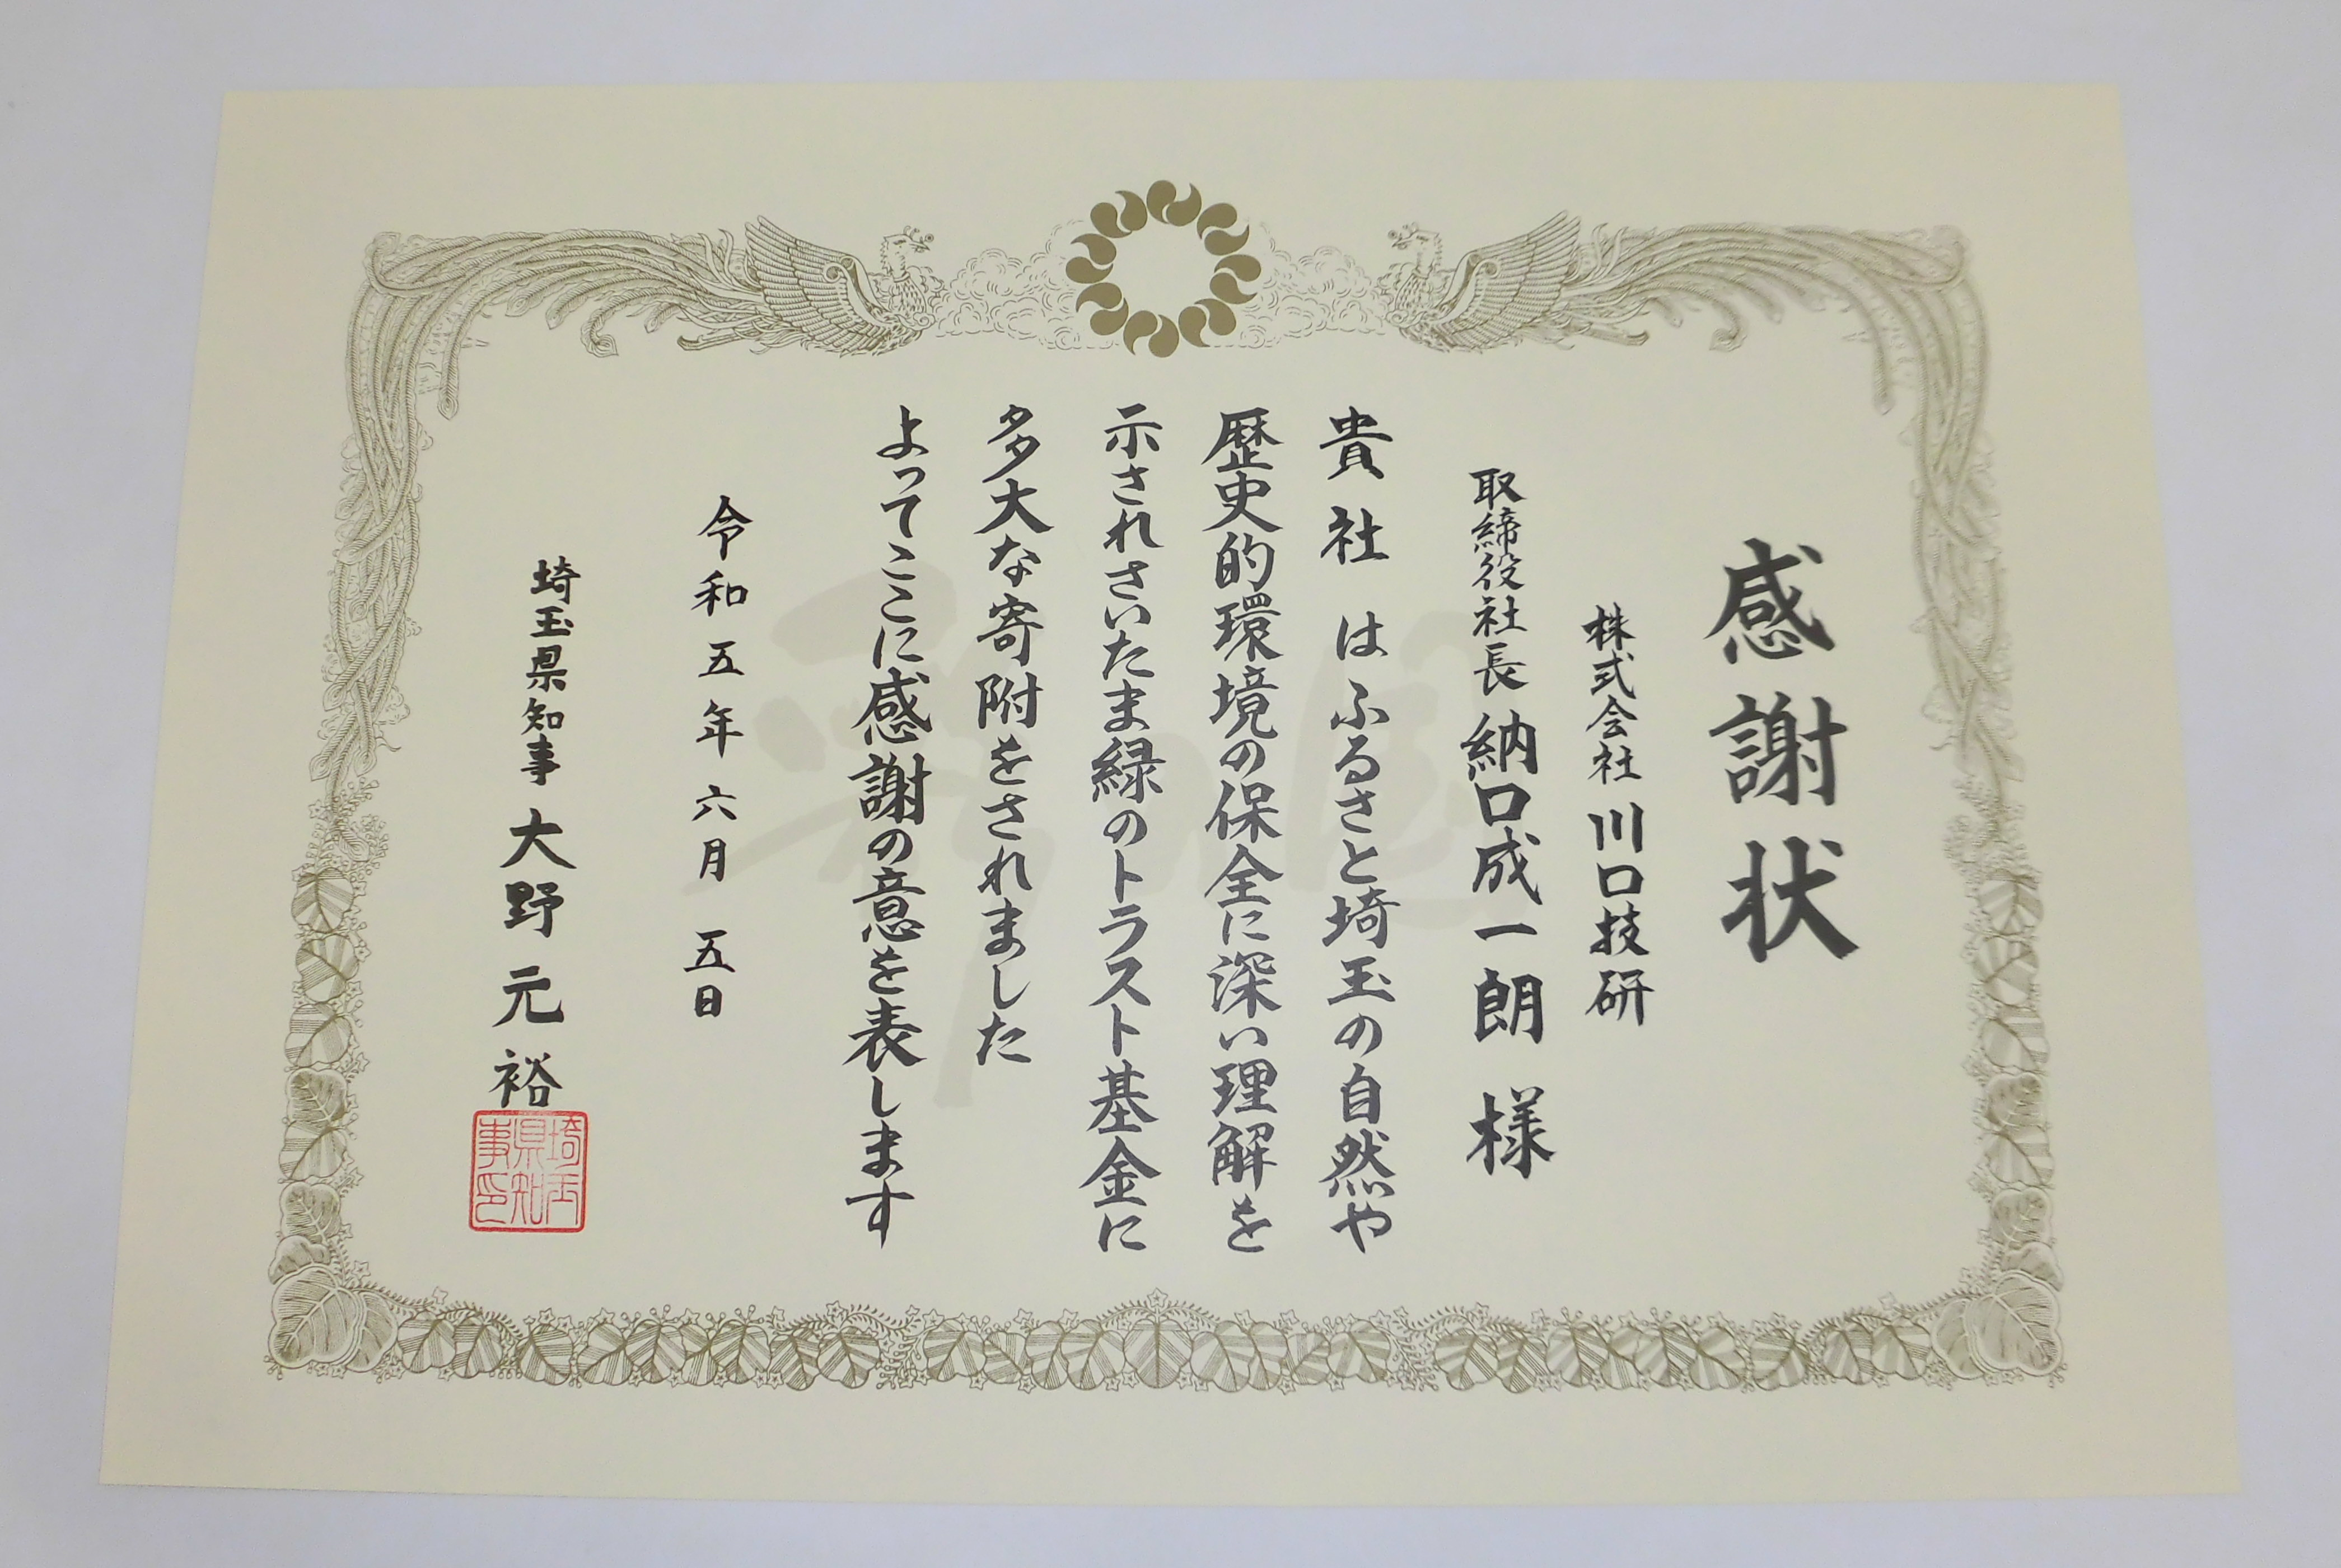 感謝状
株式会社 川口技研
取締役社長 納口成一朗 様
貴社 はふるさと埼玉の自然や
歴史的環境の保全に深い理解を
示されさいたま緑のトラスト基金に
多大な寄附をされました
よってここに感謝の意を表します
令和五年六月 五日
埼玉県知事 大野元裕
埼玉
県知
事印
彩の国